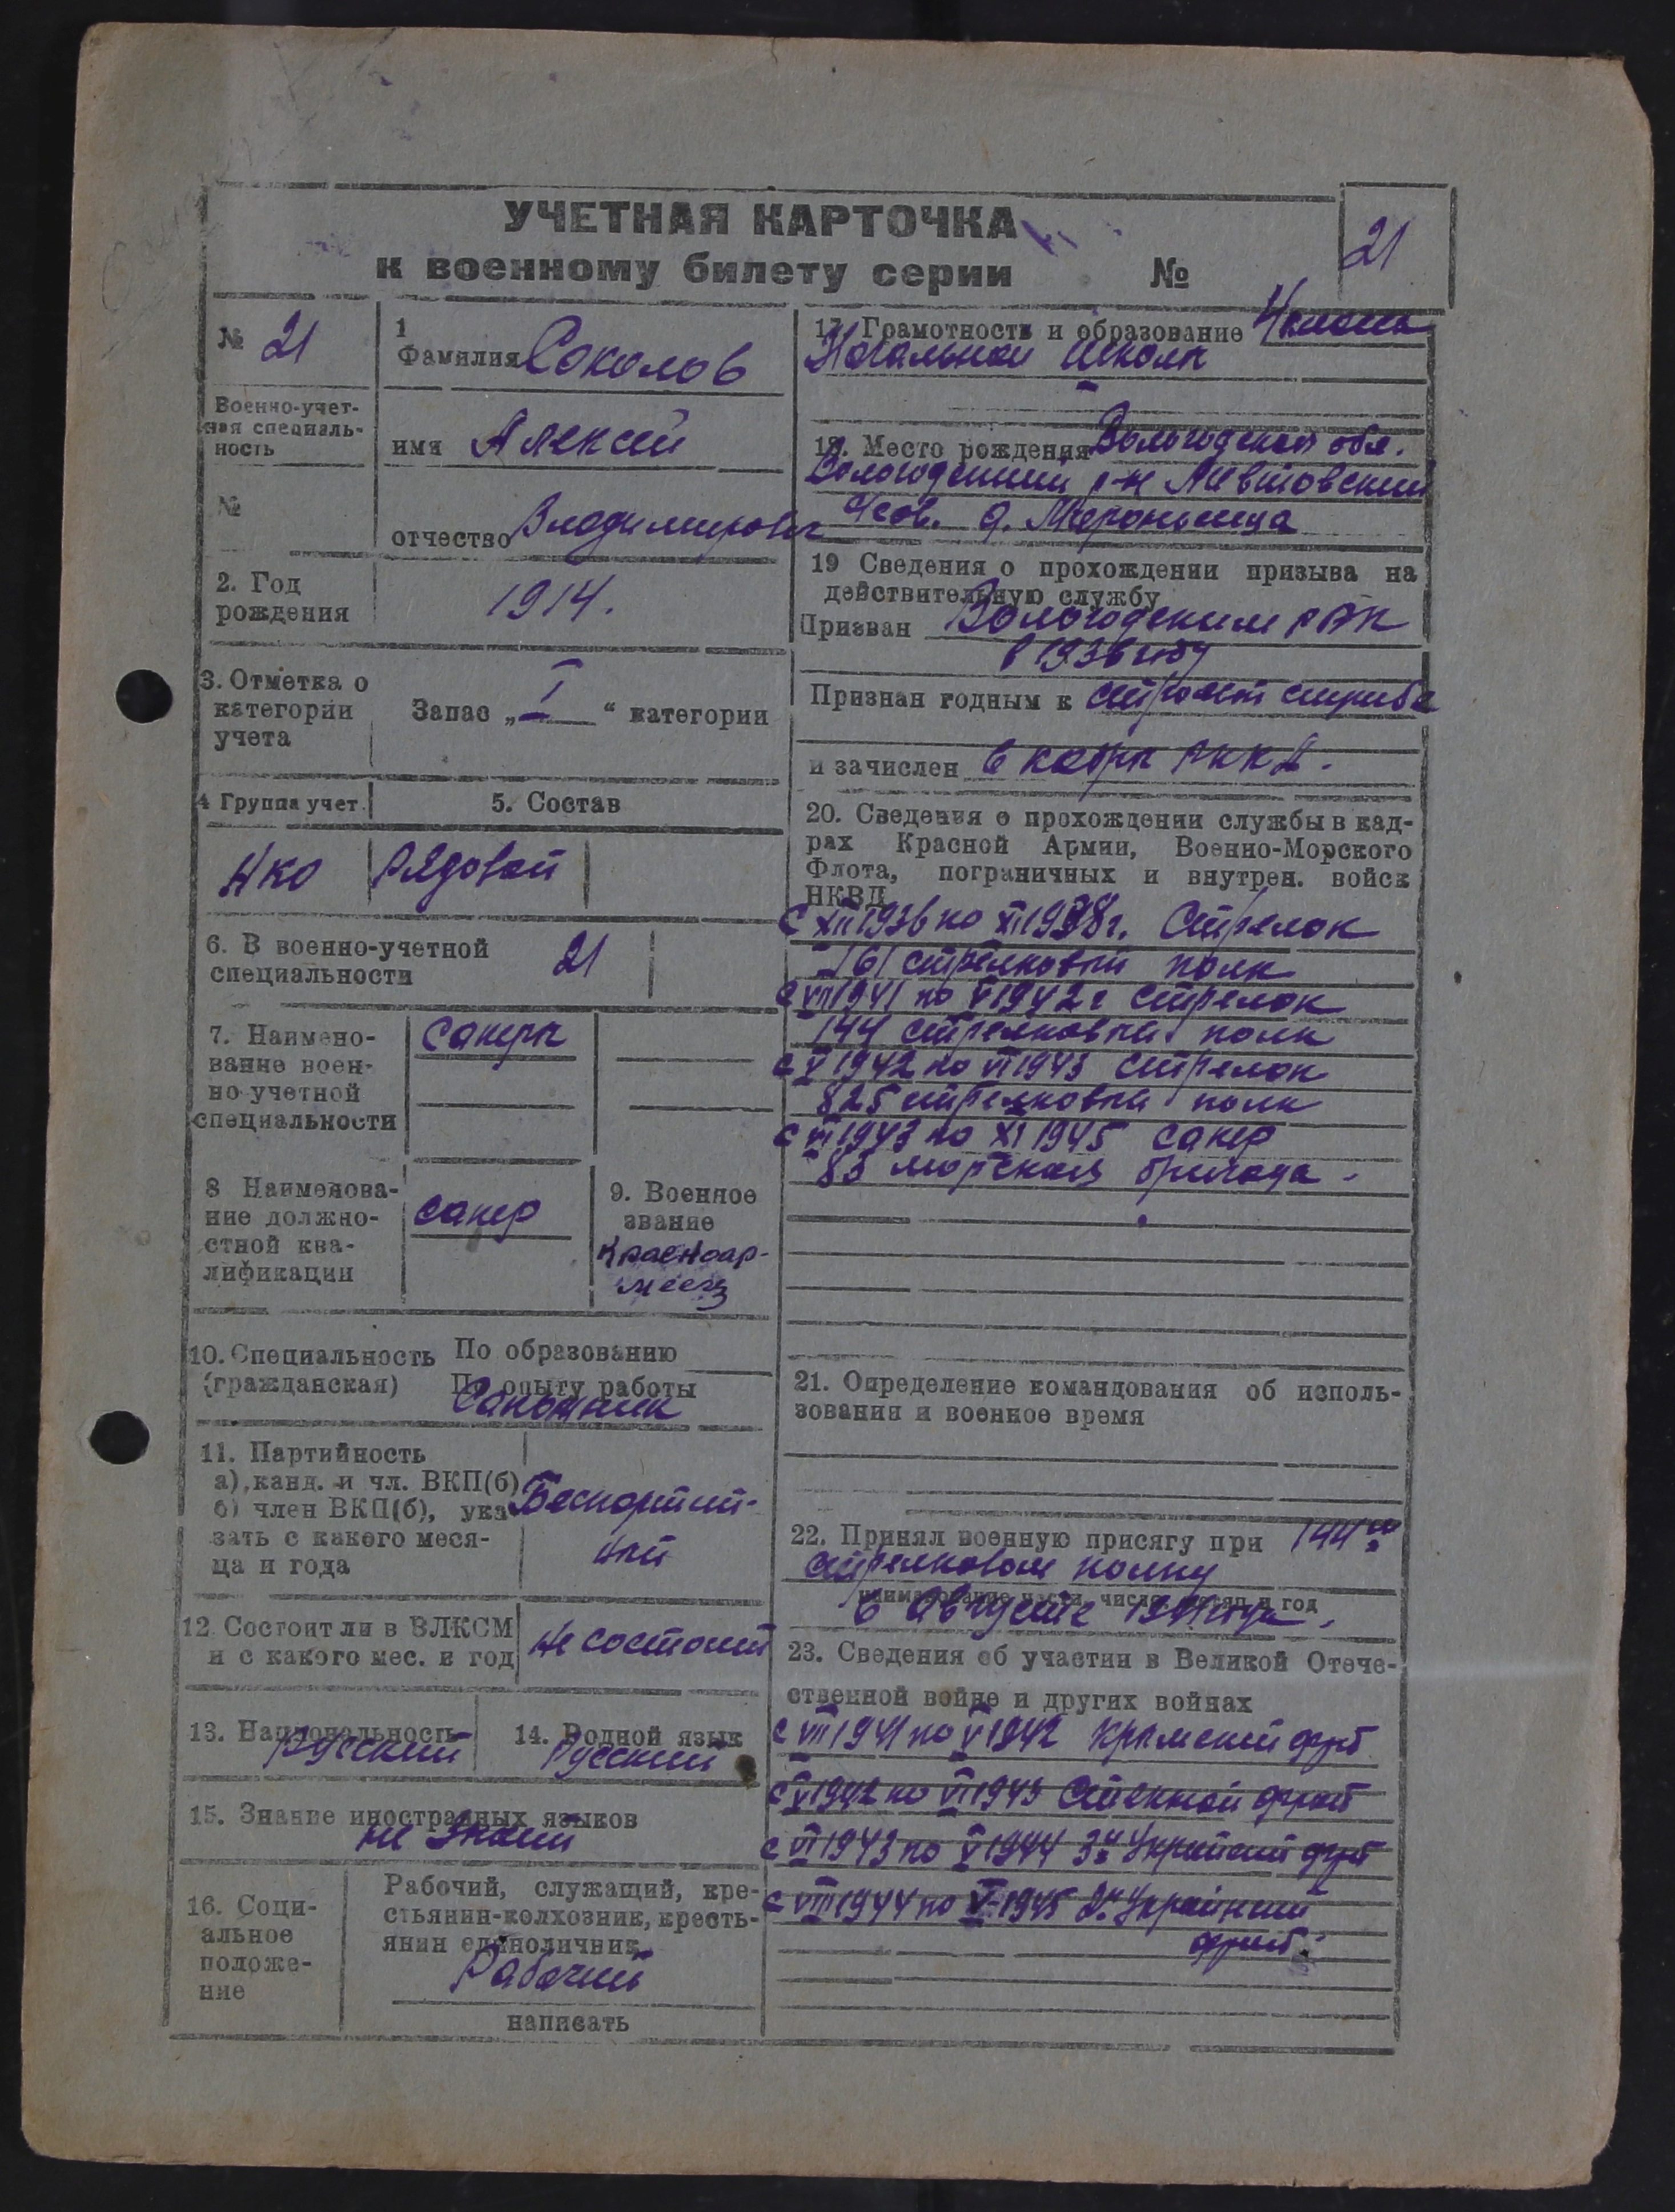 УЧЕТНАЯ КАРТОЧКА
к военному билету серии №
21
№ 21
Военно-учет-
ная специаль-
ность
№
1
Фамилия Соколов
имя Алексей
отчество Владимирович
2. Год
рождения
1914.
3. Отметка о
категории
учета
Запас „ I “ категории
4 Группа учет.
5. Состав
НКО
Рядовой
6. В военно-учетной
специальности
21
7. Наимено-
вание воен-
но-учетной
специальности
Саперы
8 Наименова-
ние должно-
стной ква-
лификации
Сапер
9. Военное
звание
Красноар-
меец
10. Специальность
(гражданская)
По образованию
По опыту работы
Сапожник
11. Партийность
а), канд. и чл. ВКП(б)
б) член ВКП(б), ука
зать с какого меся-
ца и года
Беспартий-
ный
12. Состоит ли в ВЛКСМ
и с какого мес. и год
Не состоит
13. Национальность
Русский
14. Родной язык
Русский
15. Знание иностранных языков
не знает
16. Соци-
альное
положе-
ние
Рабочий, служащий, кре-
стьянин-колхозник, кресть-
янин единоличник
Рабочий
написать
17. Грамотность и образование 4 класса
Начальной школы
18. Место рождения Вологодской обл.
Вологодский р-н
с/сов. д.
19 Сведения о прохождении призыва на
действительную службу
Призван Вологодским РВК
в 1936 году
Признан годным к строевой службе
и зачислен в кадры РККА.
20. Сведения о прохождении службы в кад-
рах Красной Армии, Военно-Морского
Флота, пограничных и внутрен. войск
НКВД
с XII 1936 по XI 1938 г. Стрелок
161 стрелковый полк
с VII 1941 по V 1942 г стрелок
144 стрелковый полк
с V 1942 по VI 1943 стрелок
825 стрелковый полк
с VI 1943 по XI 1945 сапер
83 морская бригада.
21. Определение командования об исполь-
зовании и военное время
22. Принял военную присягу при 144м
стрелковом полку
наименование части, число, месяц и год
в Августе 1941 года.
23. Сведения об участии в Великой Отече-
ственной войне и других войнах
с VII 1941 по V 1942 Крымский фрт
с V 1942 по VI 1943 Степной фронт
с VI 1943 по V 1944 3й Украинский фрт
с VIII 1944 по V 1945 2й Украинский
фронт.